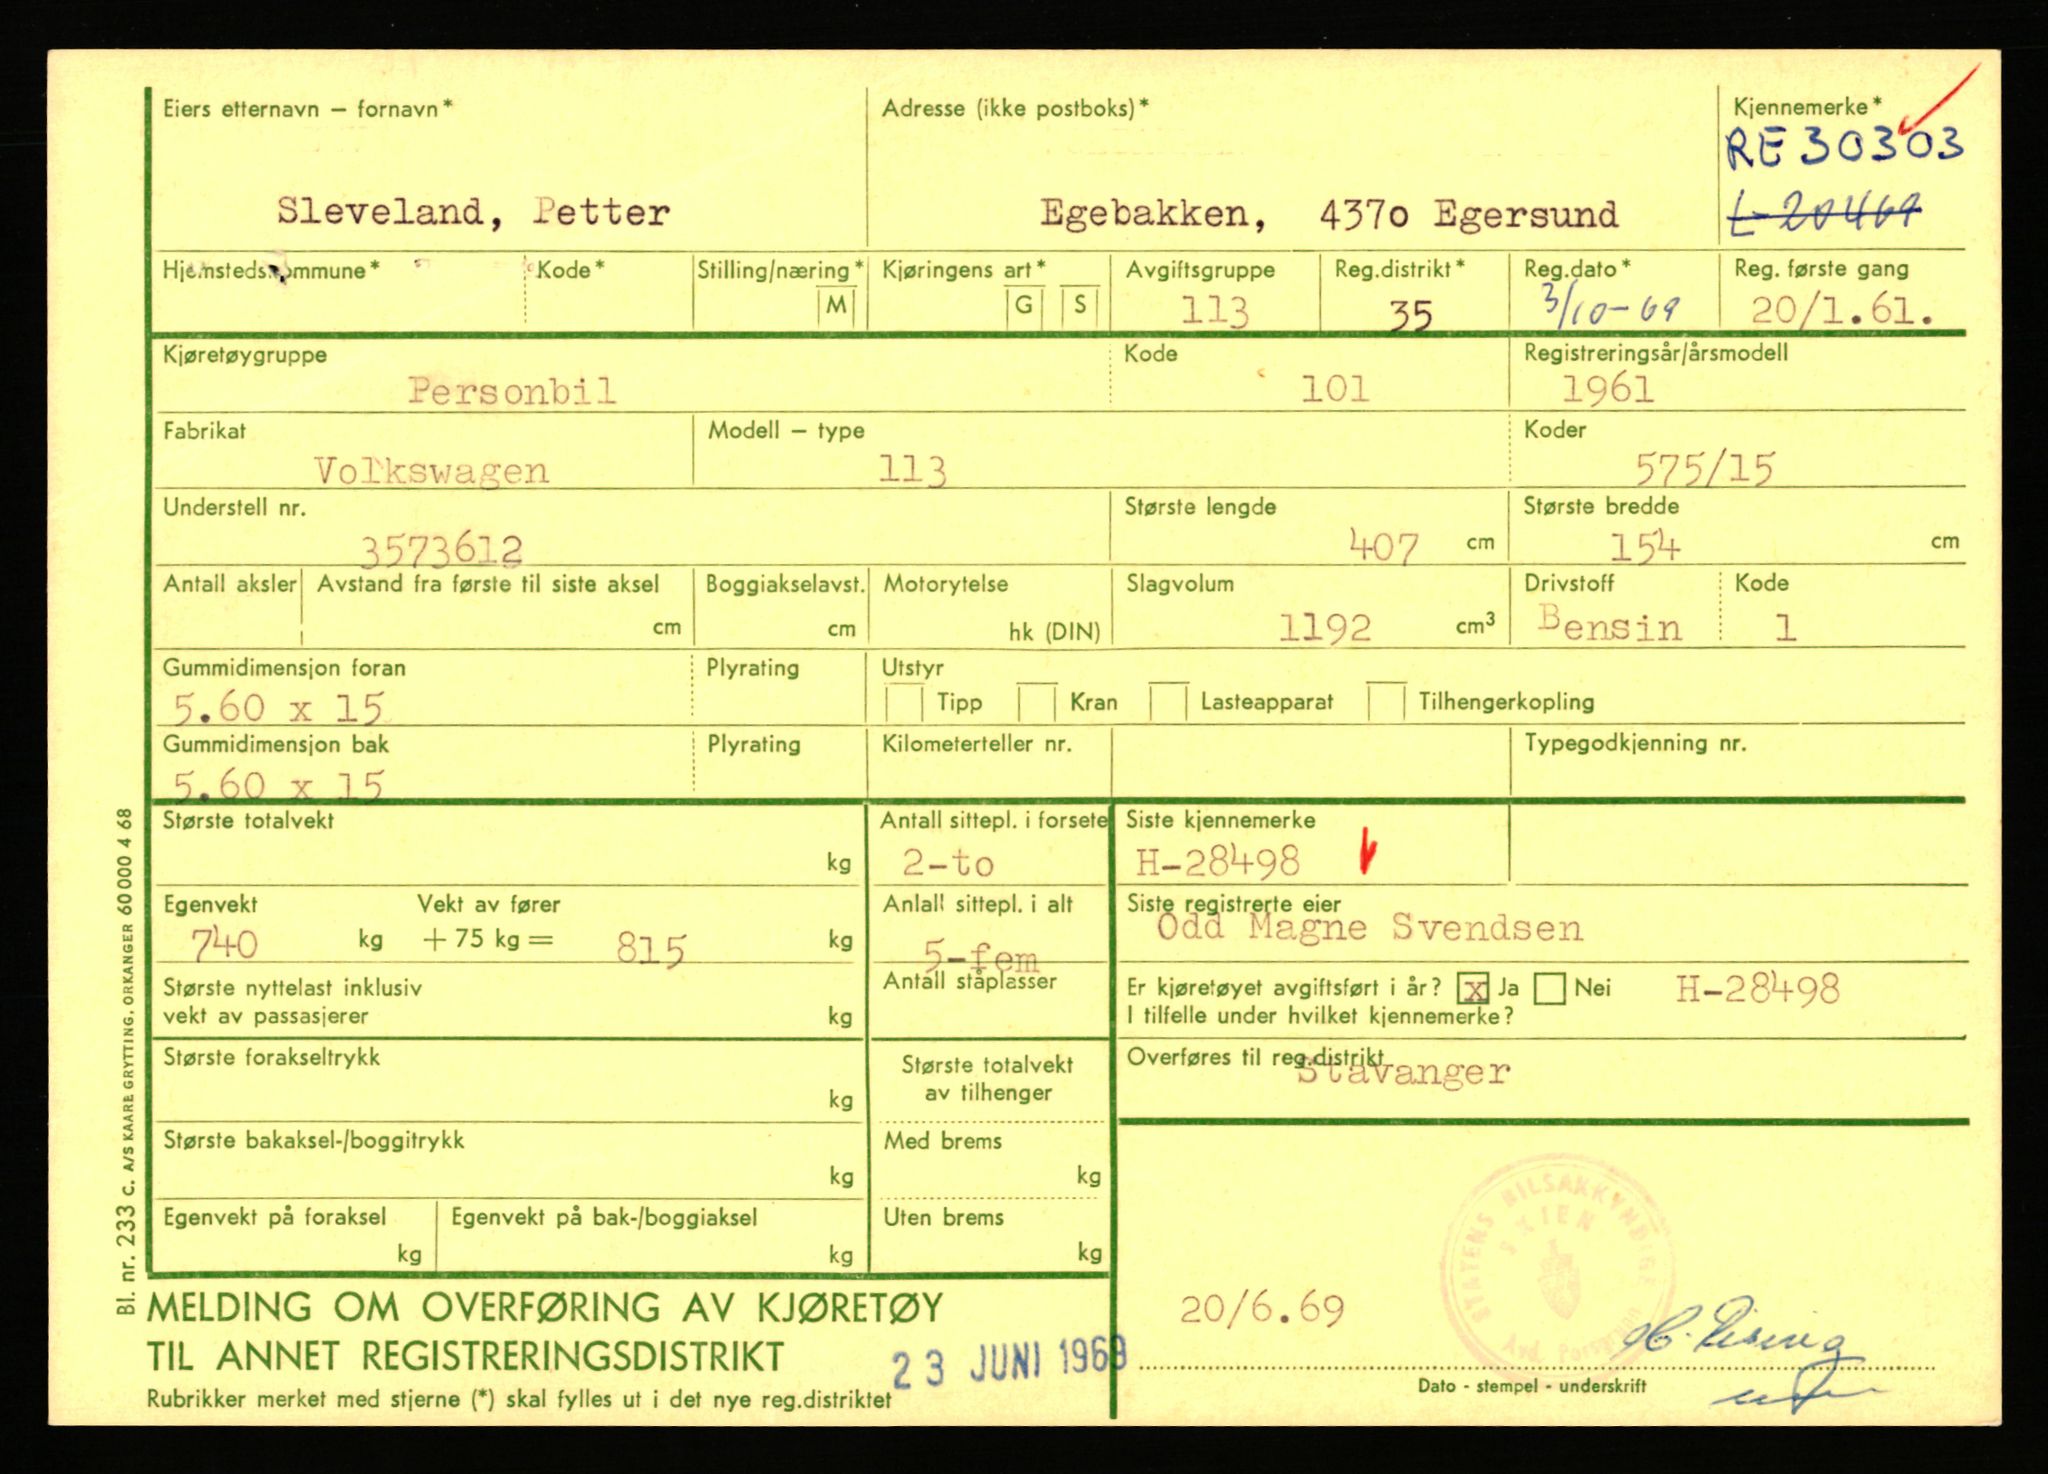 Eiers etternavn – fornavn*
Sleveland, Petter
Adresse (ikke postboks)*
Egebakken, 4370 Egersund
Kjennemerke*
RE 30303
L-20469
Hjemstedskommune*
Kode*
Stilling/næring*
M
Kjøringens art*
G S
Avgiftsgruppe
113
Reg.distrikt*
35
Reg.dato*
3/10-69
Reg. første gang
20/1.61.
Kjøretøygruppe
Personbil
Kode
101
Registreringsår/årsmodell
1961
Fabrikat
Volkswagen
Modell – type
113
Koder
575/15
Understell nr.
3573612
Største lengde
407 cm
Største bredde
154 cm
Antall aksler
Avstand fra første til siste aksel
cm
Boggiakselavst.
cm
Motorytelse
hk (DIN)
Slagvolum
1192 cm³
Drivstoff
Bensin
Kode
1
Gummidimensjon foran
5.60 x 15
Plyrating
Utstyr
Tipp Kran Lasteapparat Tilhengerkopling
Gummidimensjon bak
5.60 x 15
Plyrating
Kilometerteller nr.
Typegodkjenning nr.
Største totalvekt
kg
Antall sittepl. i forsete
2-to
Siste kjennemerke
H-28498
Egenvekt
740 kg
Vekt av fører
+ 75 kg = 815 kg
Anlall sittepl. i alt
5-fem
Siste registrerte eier
Odd Magne Svendsen
Største nyttelast inklusiv
vekt av passasjerer
kg
Antall ståplasser
Er kjøretøyet avgiftsført i år? x Ja Nei H-28498
I tilfelle under hvilket kjennemerke?
Største forakseltrykk
kg
Største totalvekt
av tilhenger
Overføres til reg.distrikt
Stavanger
Største bakaksel-/boggitrykk
kg
Med brems
kg
Egenvekt på foraksel
kg
Egenvekt på bak-/boggiaksel
kg
Uten brems
kg
STATENS BILSAKKYNDIGE
SKIEN
Avd. Porsgrunn
20/6.69
MELDING OM OVERFØRING AV KJØRETØY
TIL ANNET REGISTRERINGSDISTRIKT
23 JUNI 1969
Rubrikker merket med stjerne (*) skal fylles ut i det nye reg.distriktet
Dato - stempel - underskrift
Bl. nr. 233 C. A/S KAARE GRYTTING, ORKANGER 60 000 4 68